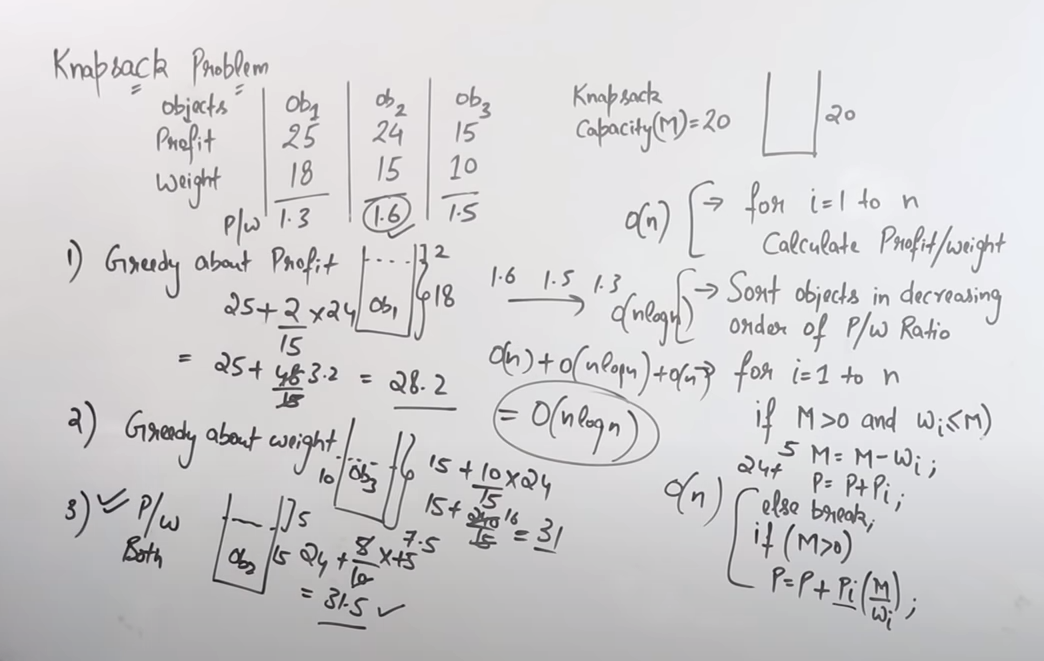 Knapsack Problem
objects ob1 ob2 ob3
Profit 25 24 15
Weight 18 15 10
P/w 1.3 1.6 1.5
Knapsack
Capacity(M)=20
20
1) Greedy about Profit
ob1
2
18
25+2/15×24
= 25+48/15 3.2 = 28.2
2) Greedy about weight
10
ob3
15+10/15×24
15+240/15 16 = 31
3) ✓ P/w
Both
ob2
5
15
24+5/10×15 7.5
= 31.5 ✓
O(n) → for i=1 to n
Calculate Profit/weight
1.6 1.5 1.3
→
O(nlogn) → Sort objects in decreasing
order of P/w Ratio
O(n)+O(nlogn)+O(n)
= O(nlogn)
→ for i=1 to n
if M>0 and wi≤M)
5 M= M-wi;
24+ P= P+Pi;
O(n)
else break;
if (M>0)
P=P+Pi(M/wi);